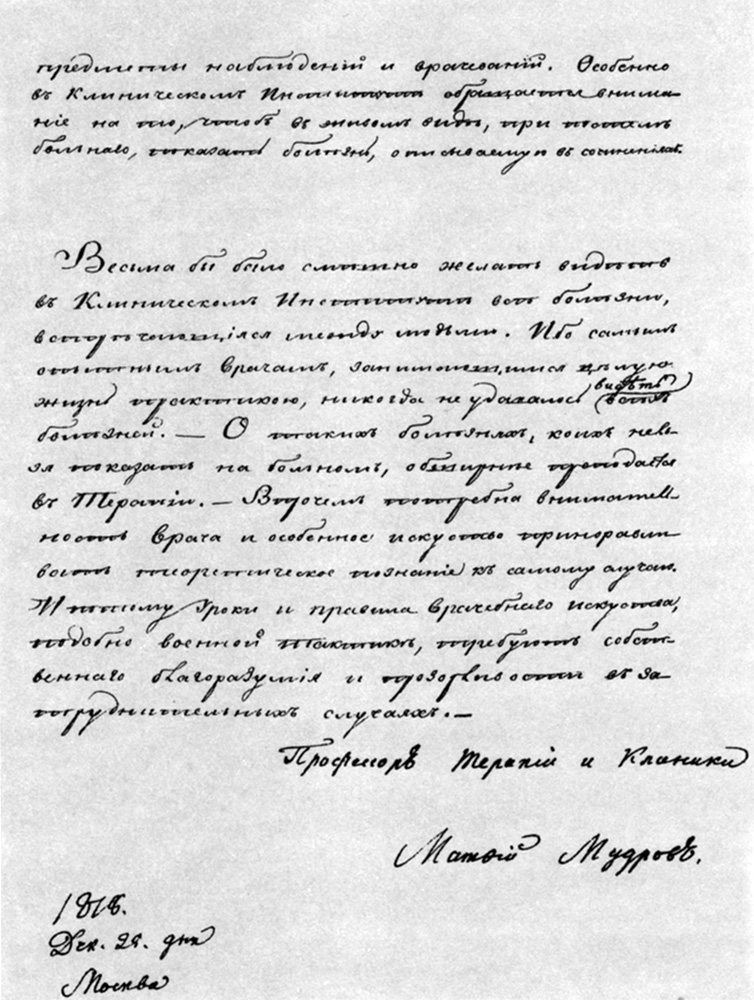 предметы наблюденій и врачеваній. Особенно
въ Клиническомъ Институтѣ обращается внима-
ніе на то, чтобъ въ живомъ видѣ, при постелѣ
больнаго, показать болѣзнь, описываемую въ сочиненіяхъ.
Весьма бы было смѣшно желать видѣть
въ Клиническомъ Институтѣ всѣ болѣзни,
встрѣчающіяся между людьми. Ибо самымъ
опытнымъ врачамъ, занимающимся цѣлую
жизнь практикою, никогда не удавалось видѣть всѣхъ
болѣзней. — О такихъ болѣзняхъ, коихъ нель-
зя показать на больномъ, обширнѣе преподается
въ Терапіи. — Впрочемъ потребна вниматель-
ность врача и особенное искусство приноравли-
вать теоретическое познаніе къ самому случаю.
И потому Уроки и правила врачебнаго искуства,
подобно военной тактикѣ, требуютъ собст-
веннаго благоразумія и прозорливости въ за-
труднительныхъ случаяхъ. —
Профессоръ Терапіи и Клиники
Матвій Мудровъ.
1818.
Дек. дня
Москва